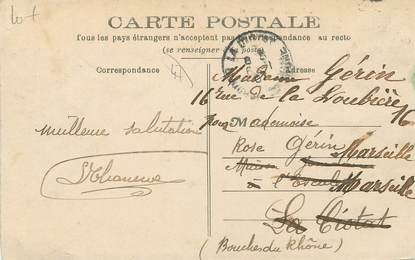 CARTE POSTALE
Tous les pays étrangers n'acceptent pas la correspondance au recto
(se renseigner à la poste)
Correspondance
Adresse
Meilleure salutation
Madame Gérin
16 rue de la Loubière 16
Pour Mademoise
Rose Gérin Marseille
Maison
à l'Escale Marseille
La Ciotat
(Bouches du Rhône)